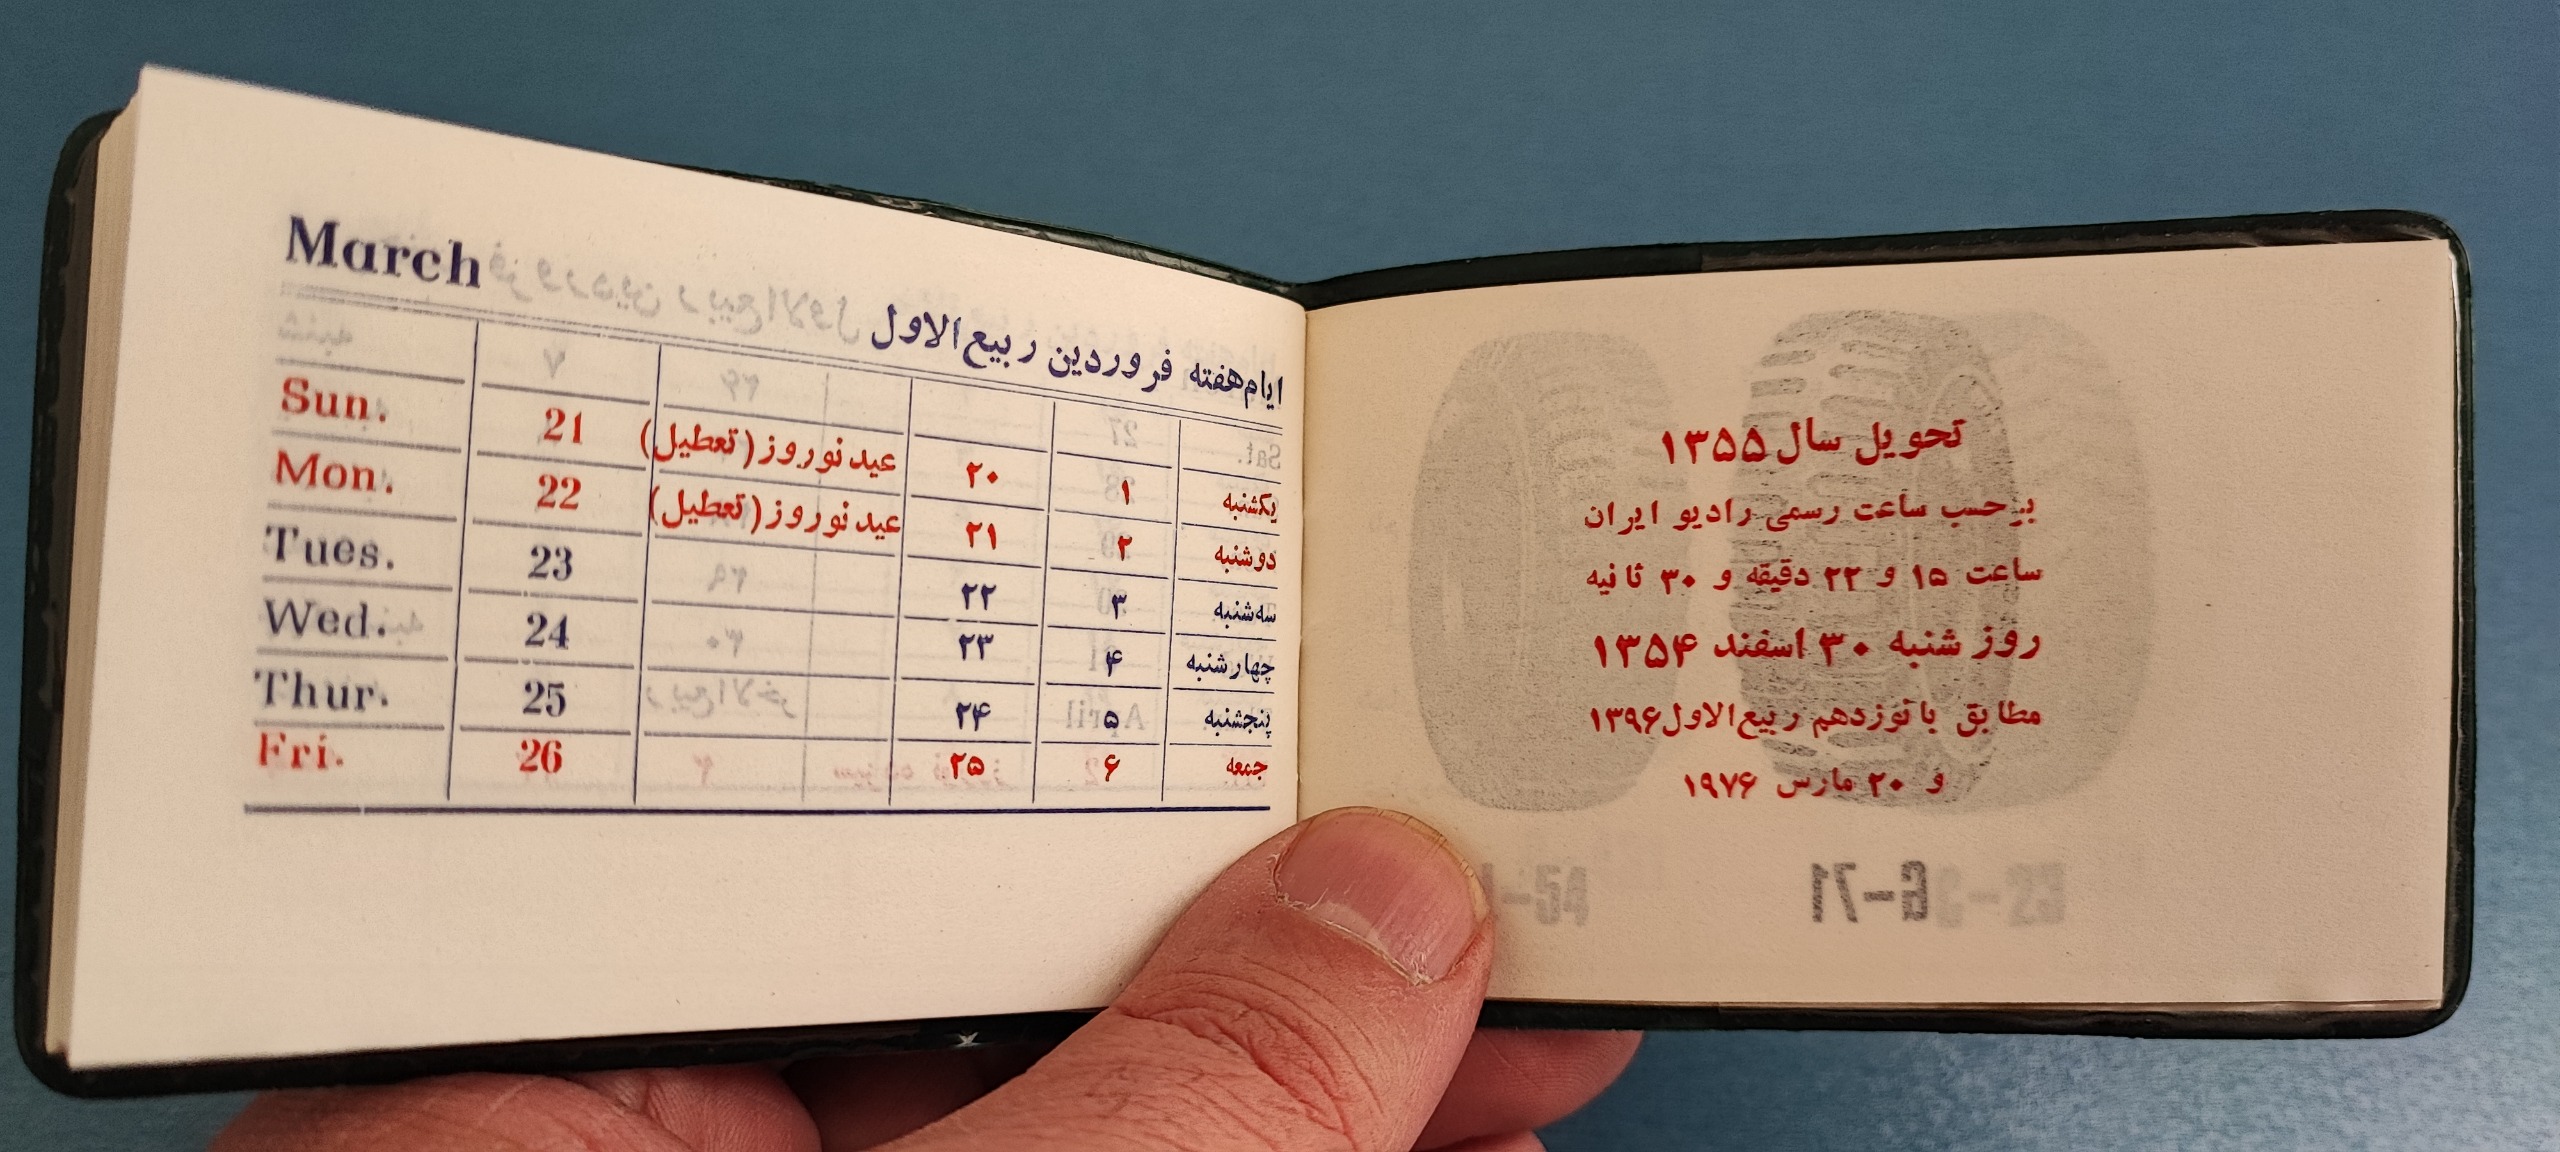 March
ایام هفته فروردین ربیع‌الاول
یکشنبه ۱ ۲۰ عید نوروز (تعطیل) 21 Sun.
دوشنبه ۲ ۲۱ عید نوروز (تعطیل) 22 Mon.
سه‌شنبه ۳ ۲۲ 23 Tues.
چهارشنبه ۴ ۲۳ 24 Wed.
پنجشنبه ۵ ۲۴ 25 Thur.
جمعه ۶ ۲۵ 26 Fri.
تحویل سال ۱۳۵۵
برحسب ساعت رسمی رادیو ایران
ساعت ۱۵ و ۲۲ دقیقه و ۳۰ ثانیه
روز شنبه ۳۰ اسفند ۱۳۵۴
مطابق با نوزدهم ربیع‌الاول ۱۳۹۶
و ۲۰ مارس ۱۹۷۶